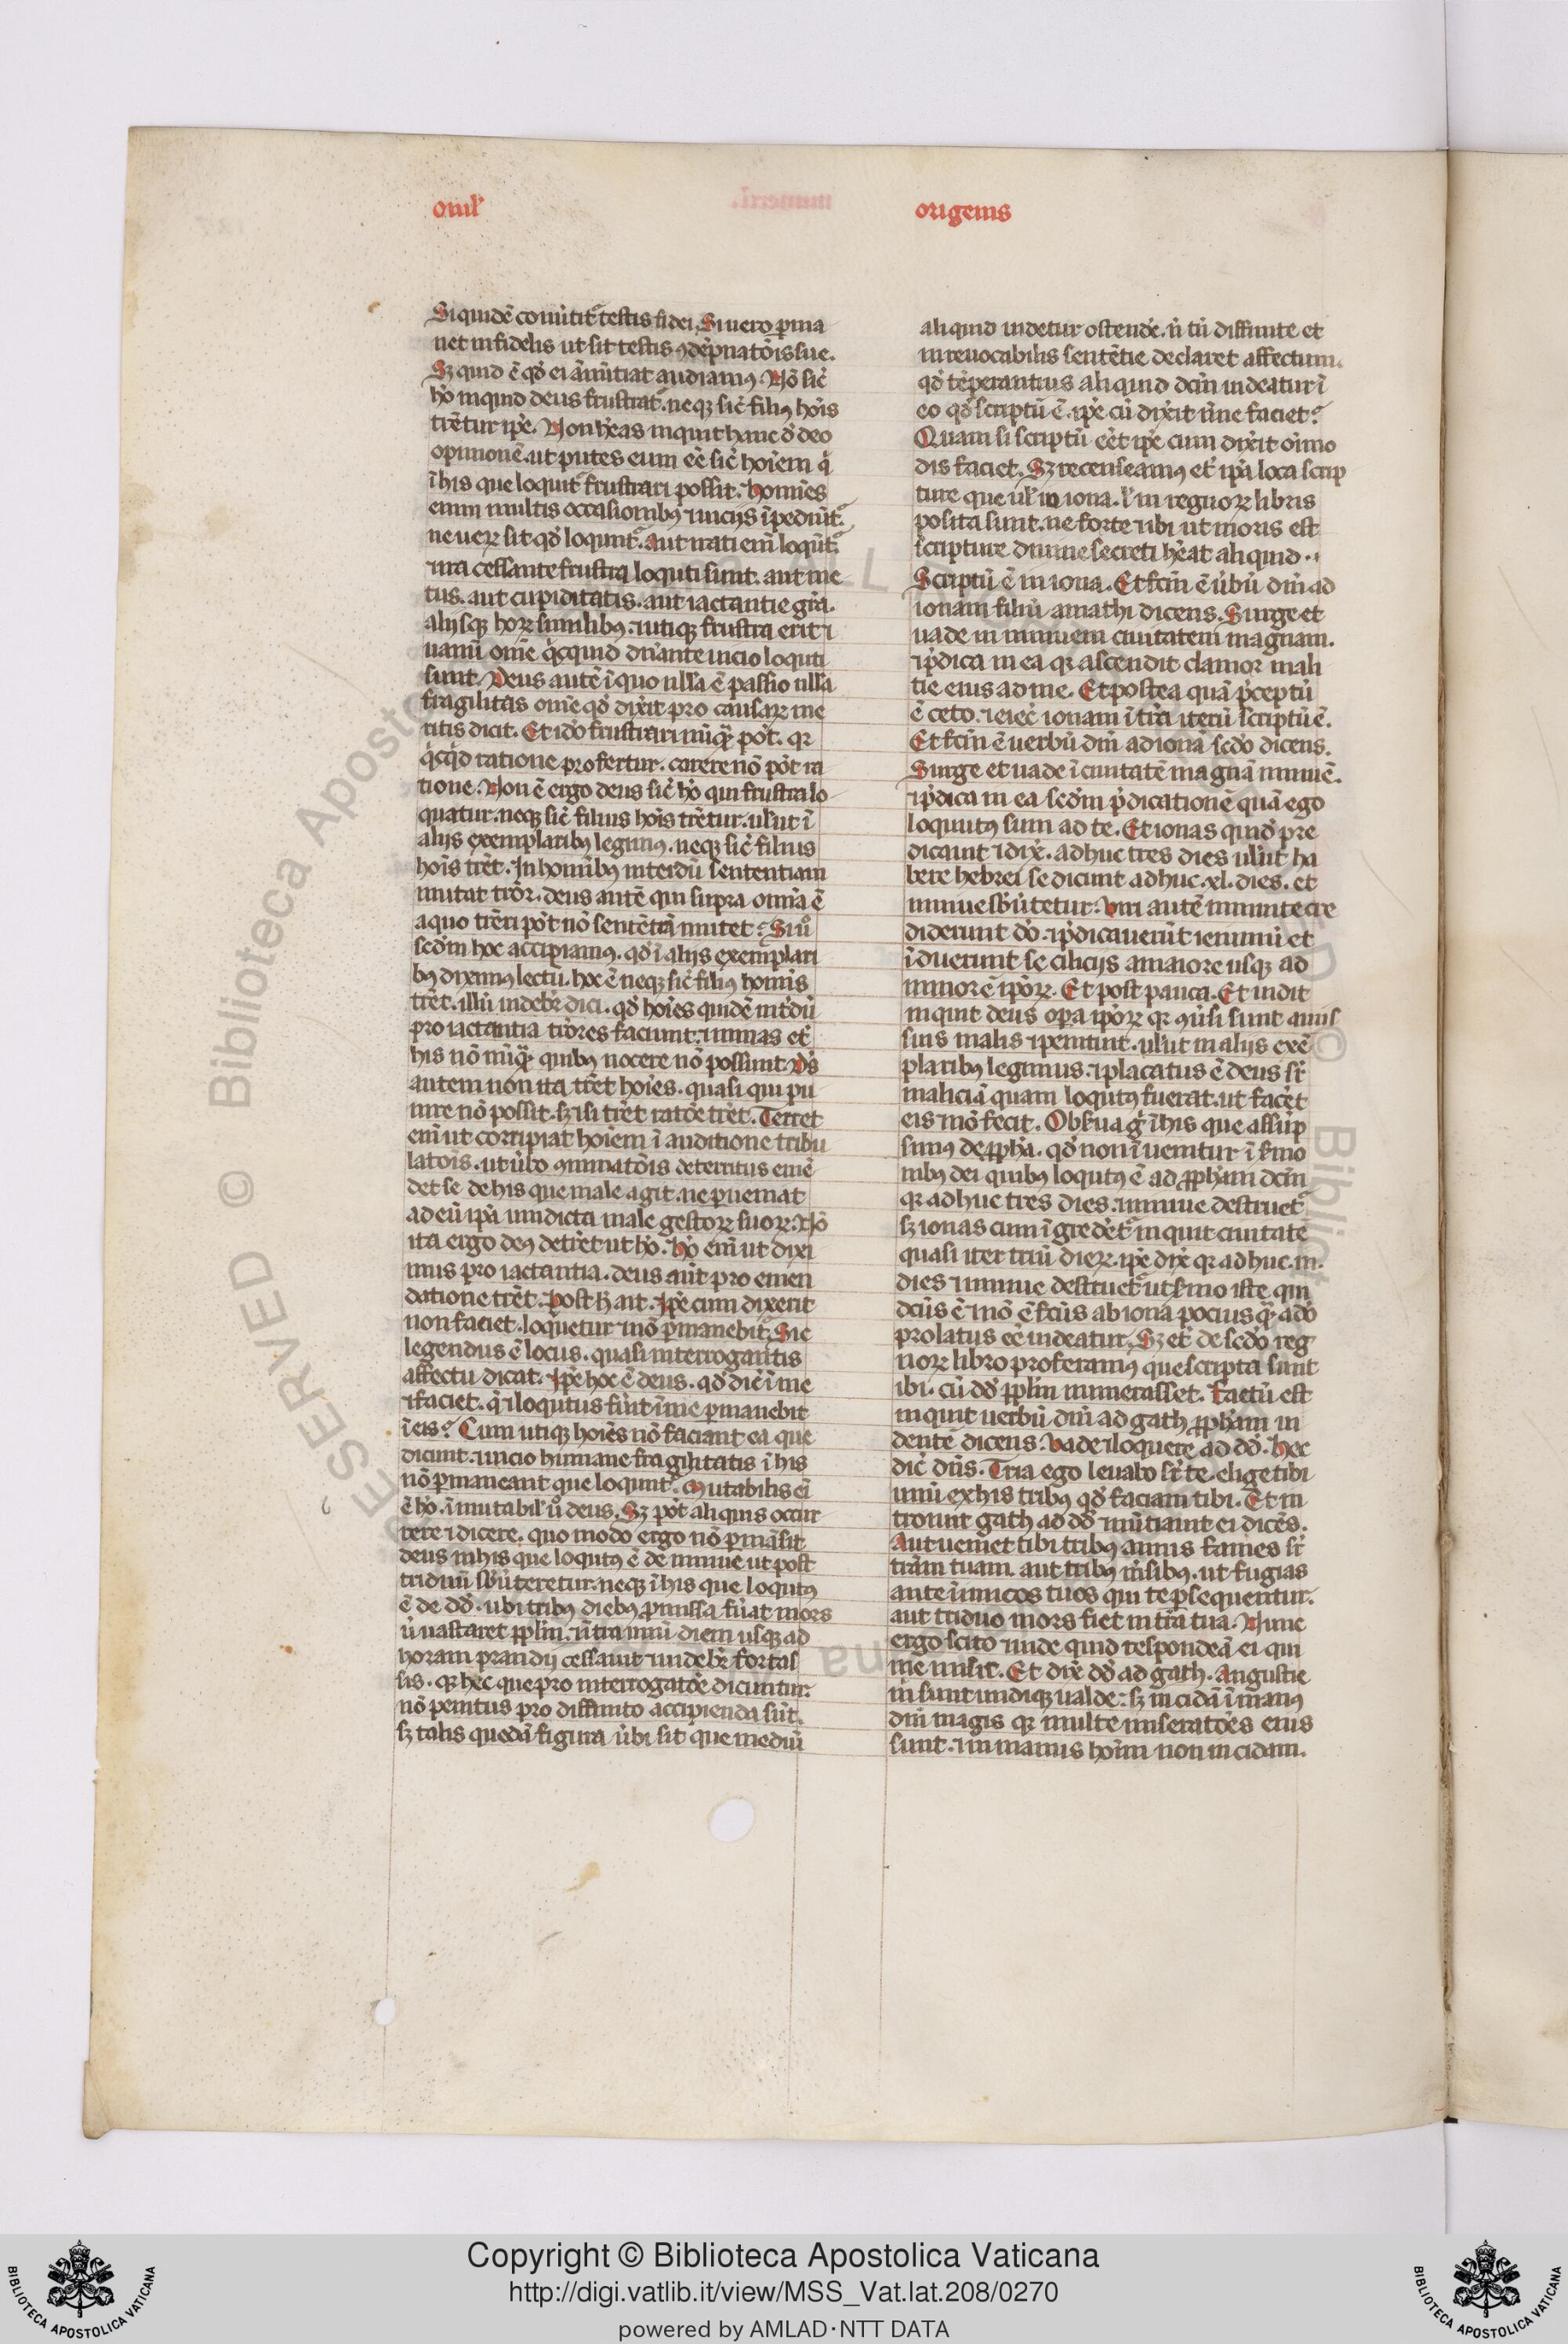 omĩl'
origenis
Si quidē cōu̾tit᷑ testis fidei. Si uero ꝑma
net infidelis ut sit testis ꝯdēpnatōis sue.
Sꝫ quid ē qđ ei ānūtiat audiamꝰ. Nō sic̄
hō inquid deus frustrat᷑. neqꝫ sic̄ filiꝰ hoīs
trētur ipē. Non hēas inquit hanc đ deo
opinionē. ut putes eum eē sic̄ hoīem q̄
ī his que loquit᷑ frustrari possit. Homīes
enim multis occasionibꝰ ⁊ uicijs īpediūt᷑
ne ueꝝ sit qđ loqunt᷑. Aut irati em̄ loqūt᷑
⁊ ira cessante frustra loquti sunt. aut me
tus. aut cupiditatis. aut iactantie grā.
alijsqꝫ hoꝝ similibꝰ. ⁊ utiqꝫ frustra erit ⁊
uanū om̄e q̇cquid dn̄ante uicio loquti
sunt. Deus autē ī quo nlla ē passio nlla
fragilitas om̄e qđ dixit pro causaꝝ me
ritis dicit. Et iđo frustrari nūq̄ pōt. qꝛ
q̇cq̇d ratione profertur. carere nō pōt ra
tione. Non ē ergo deus sic̄ hō qui frustra lo
quatur. neqꝫ sic̄ filius hoīs trētur. ul'ut ī
alijs exemplaribꝰ legimꝰ. neqꝫ sic̄ filius
hoīs trēt. In homībꝰ interdū sententiam
mutat tiōr. deus autē qui supra om̄ia ē
a quo trēri pōt nō sentētiā mutet? Siu̾o
scđm hoc accipiamus. qđ ī alijs exemplari
bꝰ diximꝰ lectū. hoc ē neqꝫ sic̄ filiꝰ homīs
trēt. illū indebr̄ dici. qđ hoīes quidē int̾dū
pro iactantia tiōres faciunt. ⁊ minas et̄
his nō nūq̄ quibꝰ nocere nō possunt. Dš
autem non ita trēt hoīes. quasi qui pu
nire nō possit. sꝫ isi trēt ratōe trēt. Terret
em̄ ut corripiat hoīem ī auditione tribu
latōis. ut u̾bo ꝯminatōis deterritus emē
det se de his que male agit. ne ꝑueniat
ad eū ipā uindicta male gestoꝝ suoꝝ. Nō
ita ergo deꝰ det̾ret ut hō. Hō em̄ ut dixi
mus pro iactantia. deus aūt pro emen
datione trēt. Post h̄ ait. Ipē cum dixerit
non faciet. loquetur ⁊ nō ꝑmanebit. Sic
legendus ē locus. quasi interrogantis
affectu dicat. Ipē hoc ē deus. qđ dic̄ ī me
⁊ faciet. q̄ ⁊ loqutus fūit ī me ꝑmanebit
ī eis? Cum utiqꝫ hoīes nō faciant ea que
dicunt. ⁊ uicio humane fragilitatis ī his
nō ꝑmaneant que loqunt᷑. Mutabilis em̄
ē hō. īmutabil' u̾o deus. Sꝫ pōt aliquis occur
rere ⁊ dicere. quo modo ergo nō ꝑmāsit
deus in his que loqutꝰ ē de niniue ut post
triduū sb̄u̾teretur. neqꝫ ī his que loqutꝰ
ē de đđ. ubi tribꝰ diebꝰ ꝓmissa fūat mors
u̾ uastaret ppl'm. ⁊ īt̾ra unū diem usqꝫ ad
horam prandij cessauit. uidebr̄ fortas
sis. qꝛ hec que pro interrogatōe dicuntur.
nō penitus pro diffinito accipienda sūt.
sꝫ talis quedā figura u̾bi sit que mediū
aliquid indetur ostend̾e. ⁊ n̄ tū diffinite et
inreuocabilis sentētie declaret affectum.
qđ tēperantius aliquid dc̄m indeatur ī
eo qđ scriptū ē. ipē cū dixit n̄ne faciet?
Quam si scriptū eēt ipē cum dixit oīmo
dis faciet. Sꝫ recenseamꝰ et̄ ipā loca scrip
ture que ul' in iona. l' in regnoꝝ libris
posita sunt. ne forte ⁊ ibi ut moris est
scripture diuine secreti hēat aliquid.
Scriptū ē in iona. Et fc̄m ē u̾bū dn̄i ad
ionam filiū amathi dicens. Surge et
uade in niniuem ciuitatem magnam.
⁊ p̄dica in ea qꝛ ascendit clamor mali
tie eius ad me. Et postea quā p̄ceptū
ē ceto. ⁊ eiec̄ ionam ī t̄rā iterū scriptū ē.
Et fc̄m ē uerbū dn̄i ad ionā sc̄đo dicens.
Surge et uade ī ciuitatē magnā niniuē.
⁊ p̄dica in ea scđm p̄dicationē quā ego
loquutꝰ sum ad te. Et ionas quid pre
dicauit ⁊ dix̄. adhuc tres dies ul'ut ha
bere hebrei se dicunt adhuc .xl. dies. et
niniue sb̄u̾tetur. Uiri autē niniuite cre
diderunt đo. ⁊ p̄dicauerūt ieiuniū et
īduerunt se cilicijs a maiore usqꝫ ad
minorē ipōꝝ. Et post pauca. Et uidit
inquit deus oꝑa ipōꝝ qꝛ ꝯu̾si sunt a uijs
suis malis ⁊ penitunt. ul'ut in alijs exē
plaribꝰ legimus. ⁊ placatus ē deus sr̄
maliciā quam loqutꝰ fuerat. ut facer̄t
eis ⁊ nō fecit. Obs̾ua g̊ ī his que assūp
simꝰ de ꝓpha. qđ non īuenitur ī s̾mo
nibꝰ dei quibꝰ loqutꝰ ē ad ꝓpham dc̄m
qꝛ adhuc tres dies. ⁊ niniue destruet᷑
sꝫ ionas cum īgreder̄et᷑ inquit ciuitatē
quasi iter triū dieꝝ. ipē dix̄ qꝛ adhuc .iii.
dies ⁊ niniue destruet᷑. ut s̾mo iste qui
dc̄us ē ⁊ nō ē fc̄us ab iona pocius q̄ a đo
prolatus eē indeatur. Sꝫ et̄ de sc̄đo reg
noꝝ libro proferamꝰ que scripta sunt
ibi. cū đđ ppl'm numerasset. Factū est
inquit uerbū dn̄i ad gath ꝓpham ui
dentē dicens. Uade ⁊ loquere ad đđ. Hec
dic̄ dn̄s. Tria ego leuabo sr̄ te. elige tibi
unū ex his tribꝰ qđ faciam tibi. Et in
troiuit gath ad đđ ⁊ nūtiauit ei dicēs.
Aut ueniet tibi tribꝰ annis fames sr̄
trām tuam. aut tribꝰ m̄sibꝰ. ut fugias
ante īimicos tuos qui te ꝑsequentur.
aut triduo mors fiet in trā tua. Nunc
ergo scito ⁊ uide quid respondeā ei qui
me misit. Et dix̄ đđ ad gath. Angustie
m̄ sunt undiqꝫ ualde. sꝫ incidā ī manꝰ
dn̄i magis qꝛ multe miseratōes eius
sunt. ⁊ in manus hoīm non incidam.
Copyright © Biblioteca Apostolica Vaticana
http://digi.vatlib.it/view/MSS_Vat.lat.208/0270
powered by AMLAD·NTT DATA